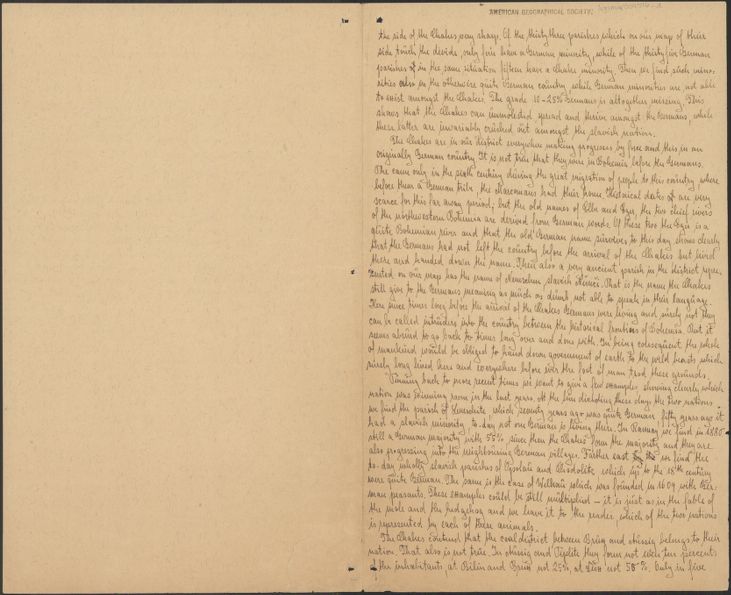 AMERICAN GEOGRAPHICAL SOCIETY
the side of the Chakes very sharp. Of the thirty three parishes which on our map of their
side touch the devide, only five have a German minority, while of the thirty five German
parishes in the same situation fifteen have a Chake minority. Then we find such mino-
rities also in the otherwise quite German country, while German minorities are not able
to exist amongst the Chakes. The grade 10-25% Germans is altogether missing. This
shows that the Chakes can unmolested spread and thrive amongst the Germans, while
these latter are invariable crushed out amongst the slavish nation.
The Chakes are in our district everywhere making progresses by force and this in an
originally German country. It is not true that they were in Bohemia before the Germans.
The came only in the sixth century during the great migration of people to this country, where
before them a German tribe, the Marcomans had their home. Historical dates are very
scarce for this far away period; but the old names of Elbe and Eger, the two chief rivers
of the northwestern Bohemia are derived from German words. Of these two the Eger is a
quite Bohemian river and that the old German name survives to this day shows clearly
that the Germans had not left the country before the arrival of the Chakes but lived
there and handed down the name. Then also a very ancient parish in the district repre-
sented on our map has the name of slavish That is the name the Chakes
still give to the Germans meaning as much as dumb, not able to speak in their language.
Here since times long before the arrival of the Chakes Germans were living and surely not they
can be called intruders into the country between the historical frontiers of Bohemia. But it
seems absurd to go back to times long over and done with. In being consequent the whole
of mankind would be obliged to hand down government of earth to the wild beasts which
surely long lived here and everywhere before ever the foot of man trod these grounds.
Turning back to more recent times we want to give a few examples showing clearly which
nation was winning room in the last years. At the line dividing these days the two nations
we find the parish of which seventy years ago was quite German, fifty years ago it
had a slavish minority, to-day not one German is living there. In we find in 1880
still a German majority with 55%, since then the Chakes form the majority and they are
also progressing into the neighbouring German villages. Further east we find the
to-day wholly slavish parishes of and which up to the 18th century
were quite German. The same is the case of which was founded in 1609 with Ger-
man peasants. These examples could be still multiplied – it is just as in the fable of
the mole and the hedgehog and we leave it to the reader which of the two nations
is represented by each of these animals.
The Chakes contend that the coal district between Brüx and Aussig belongs to their
nation. That also is not true. In Aussig and Teplitz they form not even ten percents
of the inhabitants, at Bilin and Brüx not 25%, at Dux not 50%. Only in five